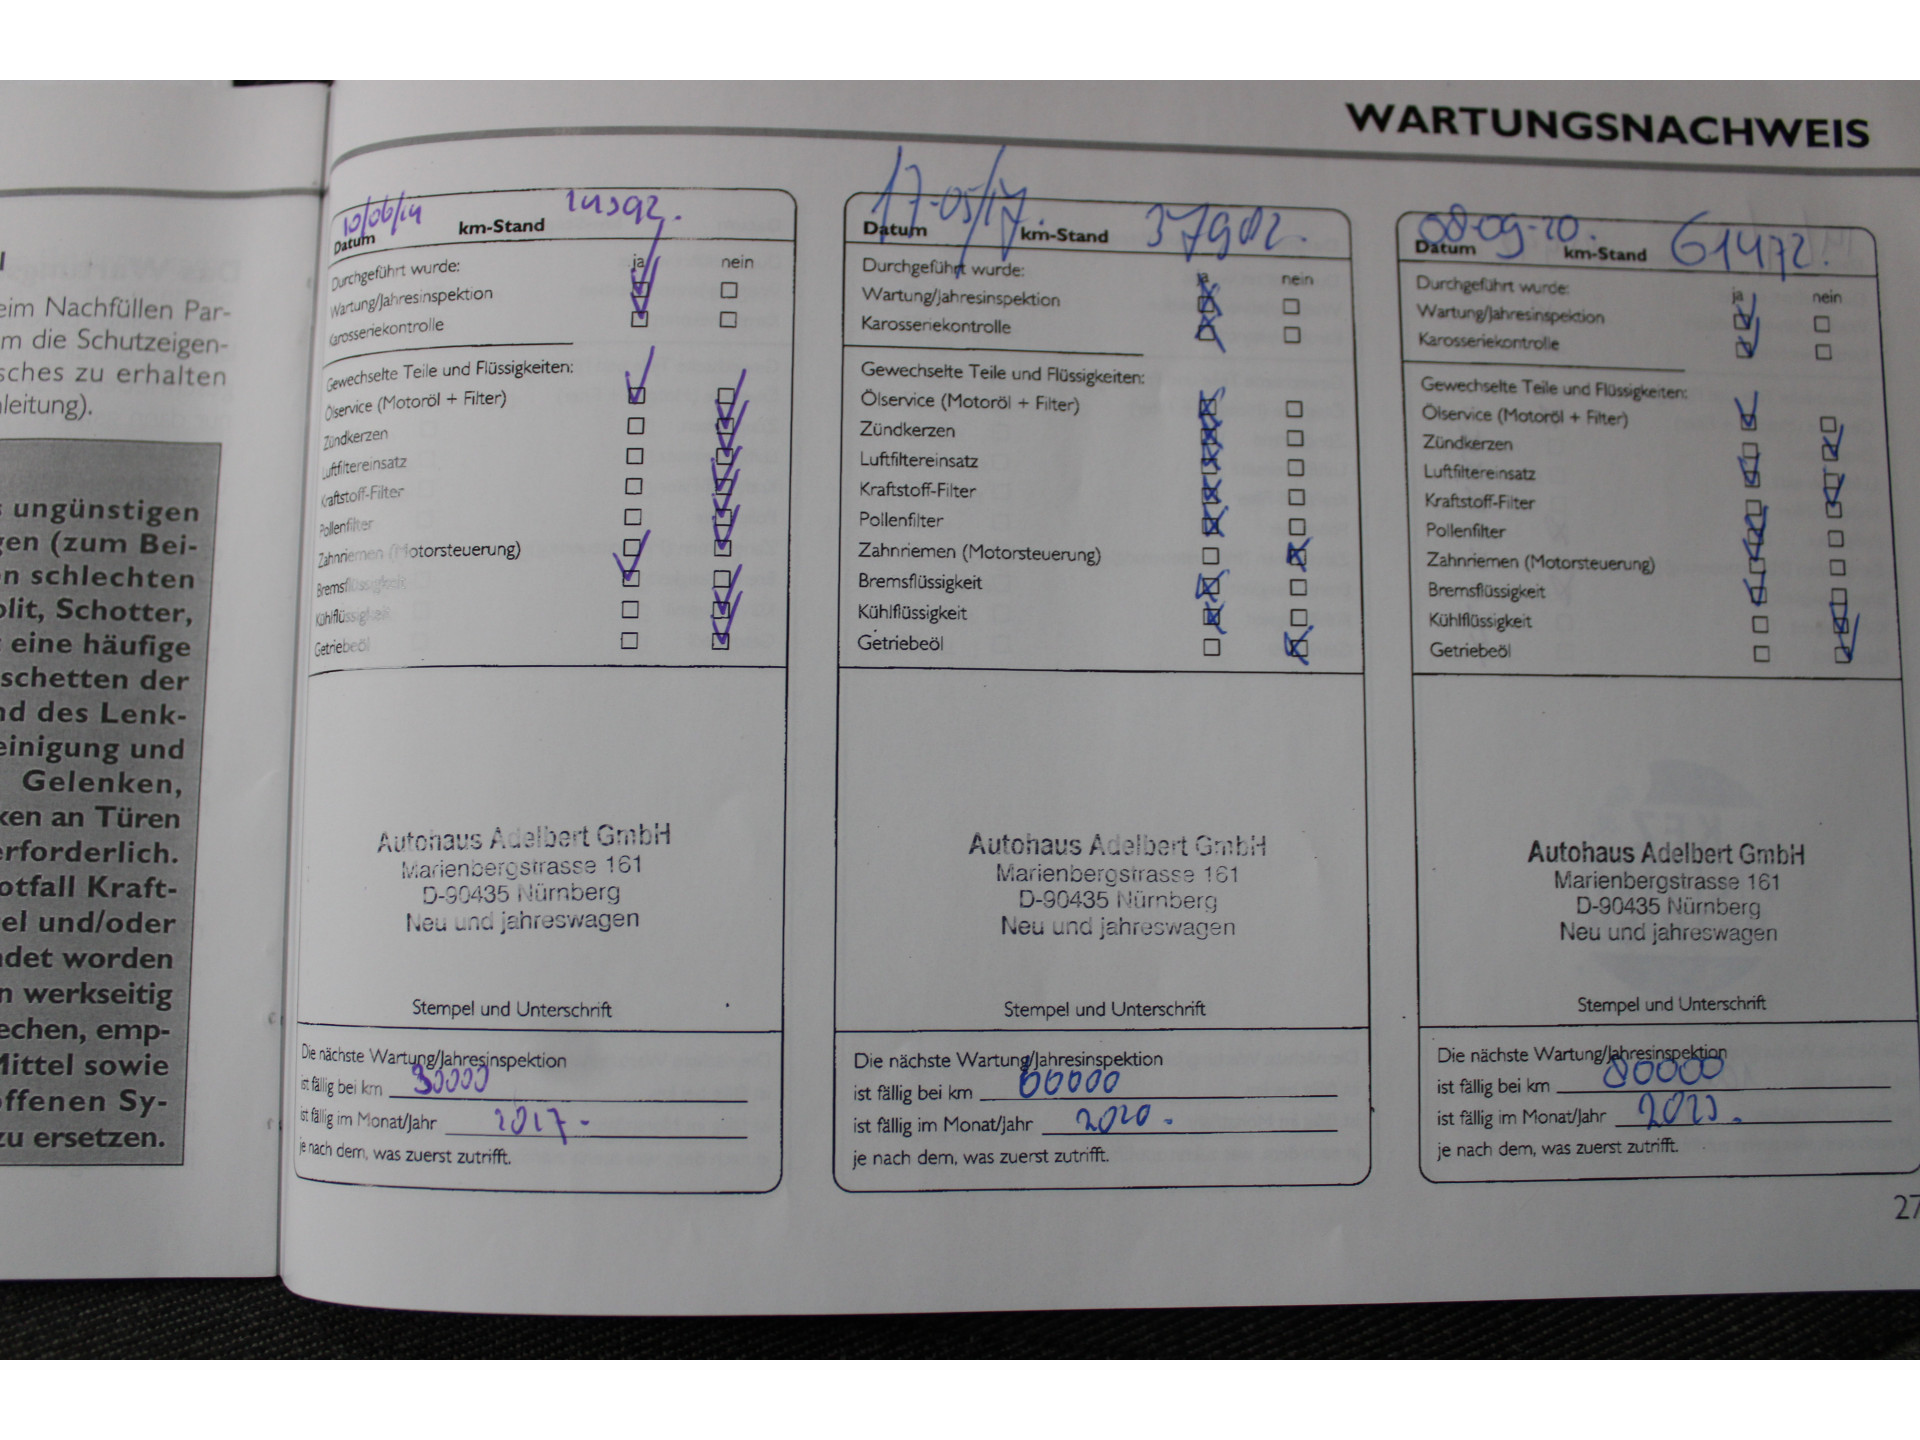 WARTUNGSNACHWEIS
eim Nachfüllen Par-
m die Schutzeigen-
sches zu erhalten
leitung).
ungünstigen
gen (zum Bei-
n schlechten
olit, Schotter,
eine häufige
schetten der
nd des Lenk-
einigung und
Gelenken,
ken an Türen
erforderlich.
otfall Kraft-
el und/oder
ndet worden
n werkseitig
echen, emp-
Mittel sowie
offenen Sy-
zu ersetzen.
10/06/14
Datum km-Stand
Durchgeführt wurde: ja nein
Wartung/Jahresinspektion
Karosseriekontrolle
Gewechselte Teile und Flüssigkeiten:
Ölservice (Motoröl + Filter)
Zündkerzen
Luftfiltereinsatz
Kraftstoff-Filter
Pollenfilter
Zahnriemen (Motorsteuerung)
Bremsflüssigkeit
Kühlflüssigkeit
Getriebeöl
Autohaus Adelbert GmbH
Marienbergstrasse 161
D-90435 Nürnberg
Neu und jahreswagen
Stempel und Unterschrift
Die nächste Wartung/Jahresinspektion
ist fällig bei km 30000
ist fällig im Monat/Jahr 2017.
je nach dem, was zuerst zutrifft.
17-05/17. 37902.
Datum km-Stand
Durchgeführt wurde: ja nein
Wartung/Jahresinspektion
Karosseriekontrolle
Gewechselte Teile und Flüssigkeiten:
Ölservice (Motoröl + Filter)
Zündkerzen
Luftfiltereinsatz
Kraftstoff-Filter
Pollenfilter
Zahnriemen (Motorsteuerung)
Bremsflüssigkeit
Kühlflüssigkeit
Getriebeöl
Autohaus Adelbert GmbH
Marienbergstrasse 161
D-90435 Nürnberg
Neu und jahreswagen
Stempel und Unterschrift
Die nächste Wartung/Jahresinspektion
ist fällig bei km 60000
ist fällig im Monat/Jahr 2020.
je nach dem, was zuerst zutrifft.
08-09-20. 61472.
Datum km-Stand
Durchgeführt wurde: ja nein
Wartung/Jahresinspektion
Karosseriekontrolle
Gewechselte Teile und Flüssigkeiten:
Ölservice (Motoröl + Filter)
Zündkerzen
Luftfiltereinsatz
Kraftstoff-Filter
Pollenfilter
Zahnriemen (Motorsteuerung)
Bremsflüssigkeit
Kühlflüssigkeit
Getriebeöl
Autohaus Adelbert GmbH
Marienbergstrasse 161
D-90435 Nürnberg
Neu und jahreswagen
Stempel und Unterschrift
Die nächste Wartung/Jahresinspektion
ist fällig bei km 80000
ist fällig im Monat/Jahr 2023.
je nach dem, was zuerst zutrifft.
27